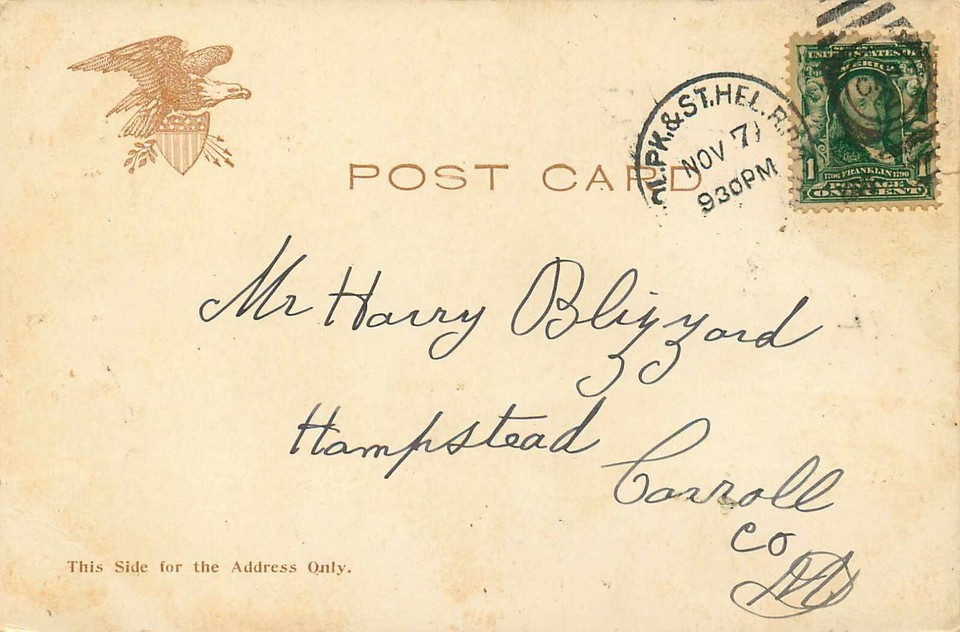 POST CARD
PK. & ST. HEL. R.
NOV 7
930PM
UNITED STATES OF
1 1706 FRANKLIN 1790
ONE CENT
Mr Harry Blizzard
Hampstead
Carroll
Co
Md
This Side for the Address Only.